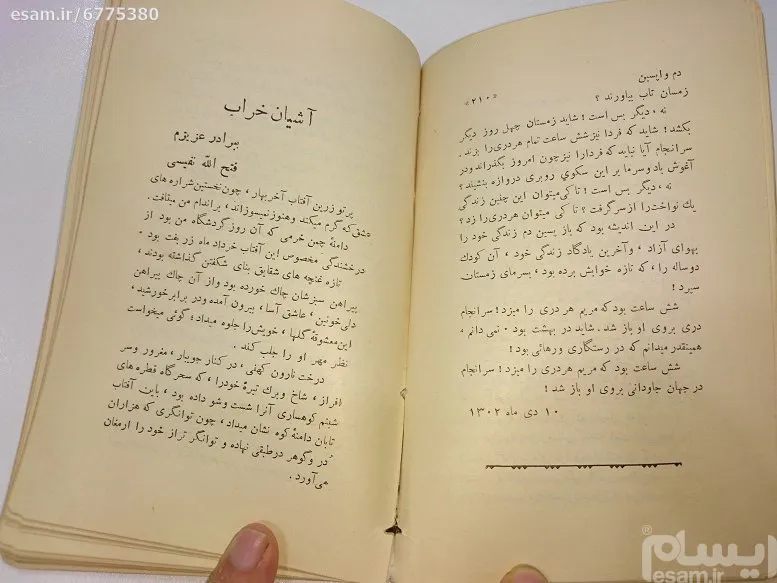 esam.ir/6775380
دم واپسین
«۲۱۰»
زمستان تاب بیاورند ؟
نه ، دیگر بس است ! شاید زمستان چهل روز دیگر
بکشد ! شاید که فردا نیزشش ساعت تمام هردری را بزند .
سرانجام آیا نباید که فردارا نیزچون امروز بگذراند ودر
آغوش باد وسرما بر این سکوی روبری دروازه بنشیند ؟
نه ، دیگر بس است ! تاکی میتوان این چنین زندگی
یك نواخت را از سر گرفت ؟ تا کی میتوان هردری را زد ؟
در این اندیشه بود که باز پسین دم زندگی خود را
بهوای آزاد ، وآخرین یادگار زندگی خود ، آن کودك
دوساله را ، که تازه خوابش برده بود ، بسرمای زمستان
سپرد !
شش ساعت بود که مریم هر دری را میزد ! سرانجام
دری بروی او باز شد . شاید در بهشت بود . نمی دانم ،
همینقدر میدانم که در رستگاری ورهائی بود !
شش ساعت بود که مریم هر دری را میزد ! سرانجام
در جهان جاودانی بروی او باز شد !
۱۰ دی ماه ۱۳۰۲
آشیان خراب
ببرادر عزیزم
فتح الله نفیسی
پرتو زرین آفتاب آخربهار ، چون نخستین شراره های
عشق که گرم میکند وهنوز نمیسوزاند ، براندام من میتافت .
دامنهٔ چمن خرمی که آن روز گردشگاه من بود از
درخشندگی مخصوص این آفتاب خرداد ماه زر بفت بود .
تازه غنچه های شقایق بنای شکفتن گذاشته بودند ،
پیراهن سبزشان چاك خورده بود واز آن چاك پیراهن
دلی خونین ، عاشق آسا ، بیرون آمده ودر برابر خورشید ،
این معشوقهٔ گلها ، خویش را جلوه میداد ؛ گوئی میخواست
نظر مهر او را جلب کند .
درخت نارون کهنی ، در کنار جویبار ، مغرور وسر
افراز ، شاخ وبرك تیرهٔ خودرا ، که سحرگاه قطره های
شبنم کوهساری آنرا شست وشو داده بود ، باین آفتاب
تابان دامنهٔ کوه نشان میداد ، چون توانگری که هزاران
دُر وگوهر درطبقی نهاده و توانگر تراز خود را ارمغان
می آورد .
ایسام
esam.ir